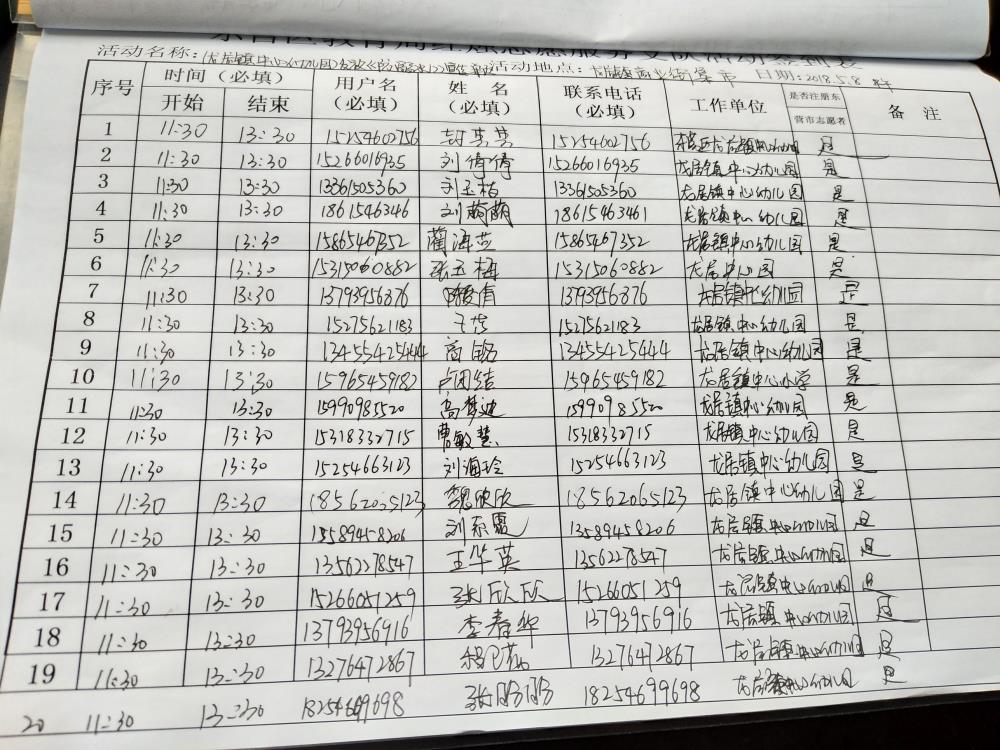 活动名称: 活动地点: 日期: 2018.5.8
序号 时间（必填） 用户名（必填） 姓 名（必填） 联系电话（必填） 工作单位 是否注册东营市志愿者 备 注
开始 结束
1 11:30 13:30 15254600756 15254602756 是
2 11:30 13:30 15266016935 刘倩倩 15266016935 龙居镇中心幼儿园 是
3 11:30 13:30 13361505360 刘玉枯 13361505360 龙居镇中心幼儿园 是
4 11:30 13:30 1861546346 刘萌萌 18615463461 龙居镇中心幼儿园 是
5 11:30 13:30 15865467352 蔺海燕 15865467352 龙居镇中心幼儿园 是
6 11:30 13:30 15315060882 张玉梅 15315060882 龙居中心园 是
7 11:30 13:30 13793956876 13793956876 龙居镇中心幼儿园 是
8 11:30 13:30 15275621183 15275621183 龙居镇中心幼儿园 是
9 11:30 13:30 13455425444 商铭 13455425444 龙居镇中心幼儿园 是
10 11:30 13:30 15965459182 15965459182 龙居镇中心小学 是
11 11:30 13:30 15990985520 高梦迪 15990985520 龙居镇中心幼儿园 是
12 11:30 13:30 15318332715 曹敏慧 15318332715 龙居镇中心幼儿园 是
13 11:30 13:30 15254663123 刘海玲 15254663123 龙居镇中心幼儿园 是
14 11:30 13:30 18562065123 魏欣欣 18562065123 龙居镇中心幼儿园 是
15 11:30 13:30 13589458206 13589458206 龙居镇中心幼儿园 是
16 11:30 13:30 13562278547 王华英 13562278547 龙居镇中心幼儿园 是
17 11:30 13:30 15266051259 张欣欣 15266051259 龙居镇中心幼儿园 是
18 11:30 13:30 13793956916 李春华 13793956916 龙居镇中心幼儿园 是
19 11:30 13:30 13276472867 13276472867 龙居镇中心幼儿园 是
20 11:30 13:30 18254699698 张盼盼 18254699698 龙居镇中心幼儿园 是